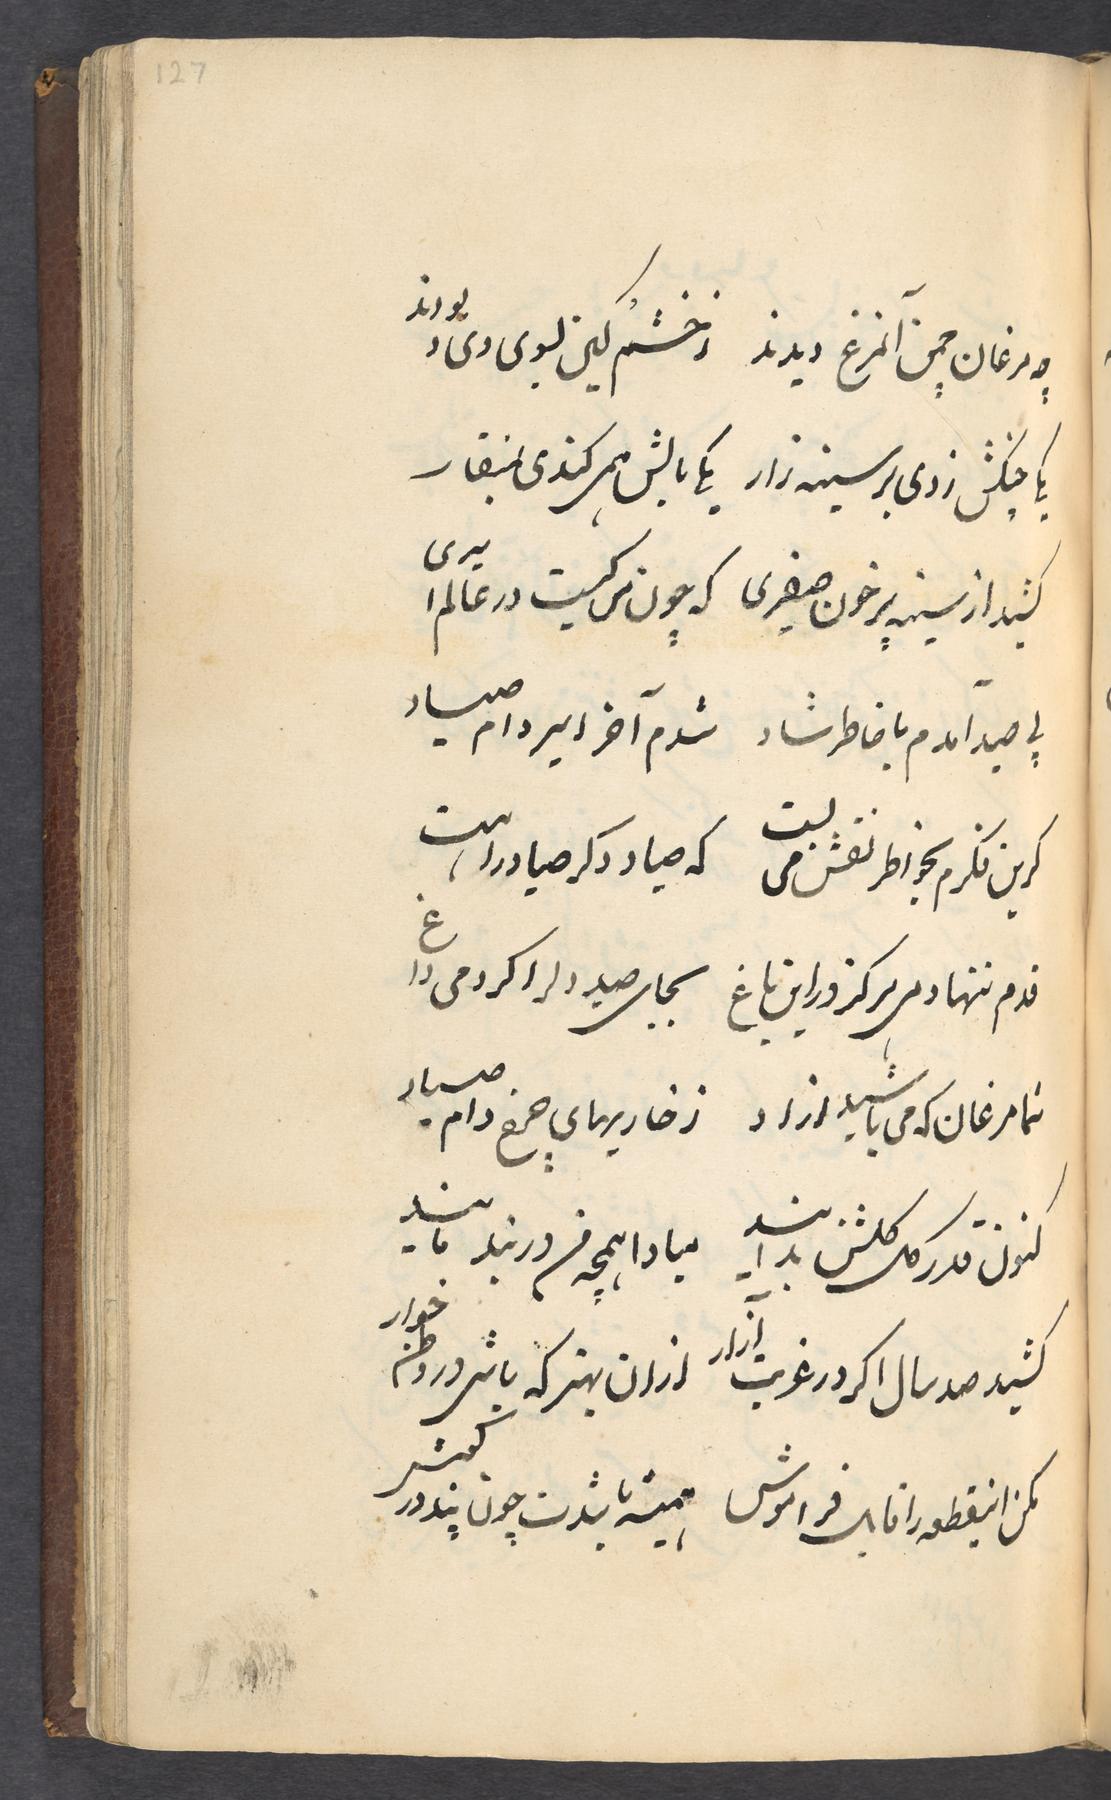 127
چه مرغان چمن آنمرغ دیدند ز خشم کین بسوی وی دویدند
یکی چنگش زدی بر سینه زار یکی بالش همی کندی بمنقار
کشید از سینه پر خون صفیری که چون من کیست در عالم اسیری
پی صید آمدم با خاطر شاد شدم آخر اسیر دام صیاد
کر این فکرم بخواطر نقش می بست که صیاد دکر صیاد را هست
قدم ننهادمی هرکز در این باغ بجای صید دلرا کردمی داغ
شما مرغان که می باشید ازاد ز خاریهای چمن دام صیاد
کنون قدر کل کلشن بدانید مبادا همچه من در بند مانید
کشید صد سال اکر در غربت آزار ازان بهتر که باشی در وطن خوار
مکن اینقطعه را فراموش همیشه بایدت چون پند در کوش